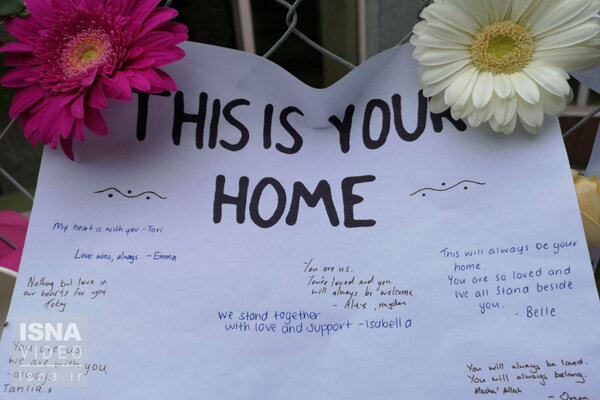 THIS IS YOUR
HOME
My heart is with you - Tori
Love wins, always. - Emma
Nothing but love in
our hearts for you
You are us.
You're loved and you
will always be welcome
- Alex,
This will always be your
home.
You are so loved and
we all stand beside
you.
- Belle
We stand together
with love and support - Isabella
ISNA
VIDEO
isna.ir
You are us,
we are with you,
- always
Tanlia x
You will always be loved.
You will always belong.
Masha' Allah